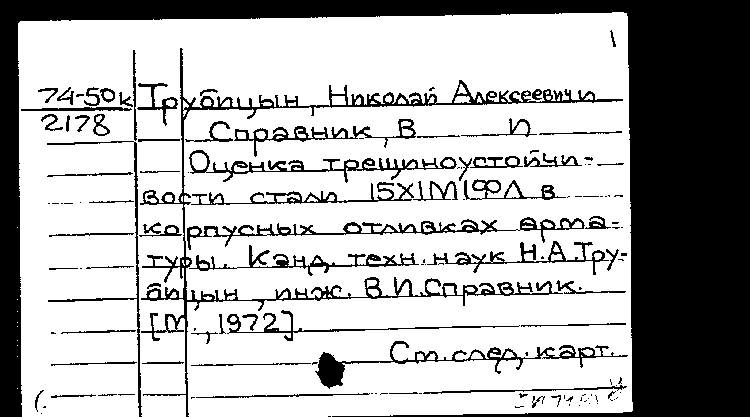 1
74-50к Трубицын, Николай Алексеевич и
2178 Справник, В И
Оценка трещиноустойчи-
вости стали 15Х1М1ФЛ в
корпусных отливках арма-
туры. Канд. техн. наук Н.А.Тру-
бицын, инж. В.И.Справник.
[М., 1972].
См. след. карт.